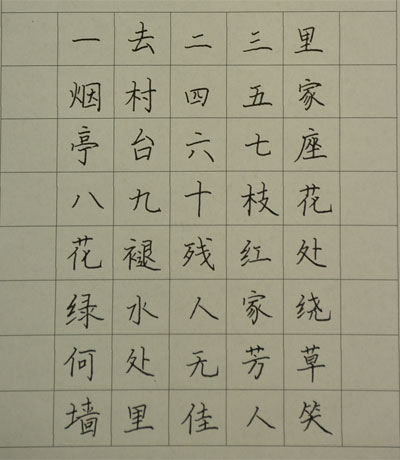 一去二三里
烟村四五家
亭台六七座
八九十枝花
花褪残红处
绿水人家绕
何处无芳草
墙里佳人笑